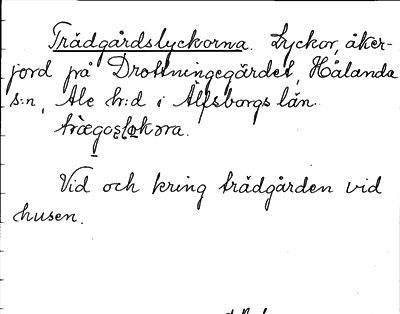 Trädgårdslyckorna. Lyckor, åker-
jord på Drottningegärdet, Hålanda
s:n, Ale h:d i Älfsborgs län.
Vid och kring trädgården vid
husen.